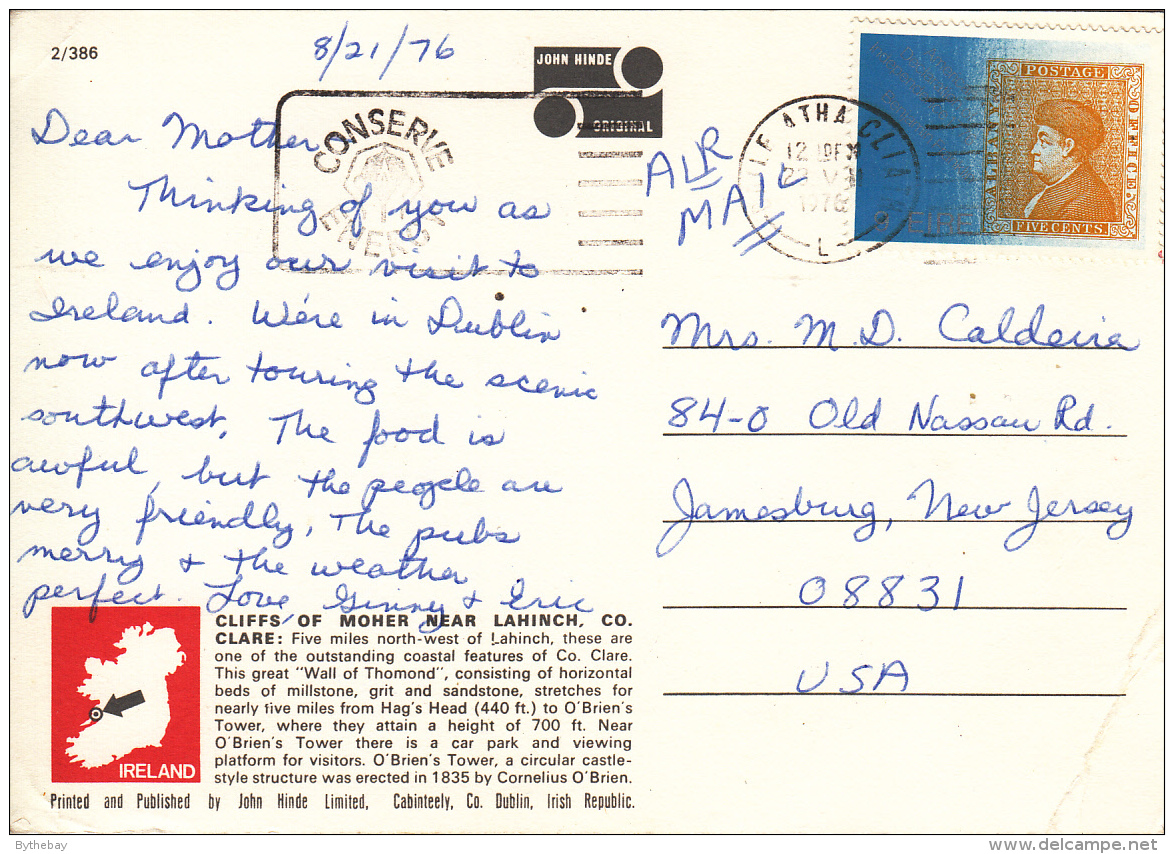 2/386
8/21/76
JOHN HINDE
ORIGINAL
CONSERVE
ENERGY
ATHA CLIATH
1976
L
POSTAGE
OFFICE.
ALBANY
FIVE CENTS.
EIRE
AIR
MAIL
Dear Mother,
Thinking of you as
we enjoy our visit to
Ireland. We're in Dublin
now after touring the scenic
southwest. The food is
awful, but the people are
very friendly, the pubs
merry & the weather
perfect. Love, Ginny & Eric
Mrs. M.D. Caldeira
84-O Old Nassau Rd.
Jamesburg, New Jersey
08831
USA
CLIFFS OF MOHER NEAR LAHINCH, CO.
CLARE: Five miles north-west of Lahinch, these are
one of the outstanding coastal features of Co. Clare.
This great "Wall of Thomond", consisting of horizontal
beds of millstone, grit and sandstone, stretches for
nearly five miles from Hag's Head (440 ft.) to O'Brien's
Tower, where they attain a height of 700 ft. Near
O'Brien's Tower there is a car park and viewing
platform for visitors. O'Brien's Tower, a circular castle-
style structure was erected in 1835 by Cornelius O'Brien.
IRELAND
Printed and Published by John Hinde Limited, Cabinteely, Co. Dublin, Irish Republic.
Bythebay
www.delcampe.net